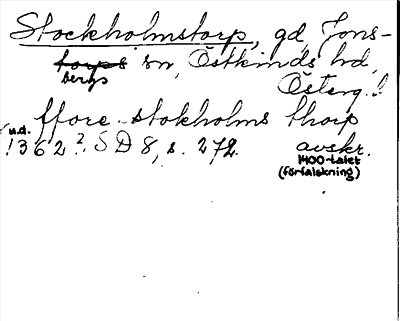 Stockholmstorp, gd, Jons-
torps
bergs sn, Östkinds hd,
Österg.!
ffore stokholms thorp
u.d.
!362? SD 8, s. 272. avskr.
1400-talet
(förfalskning)